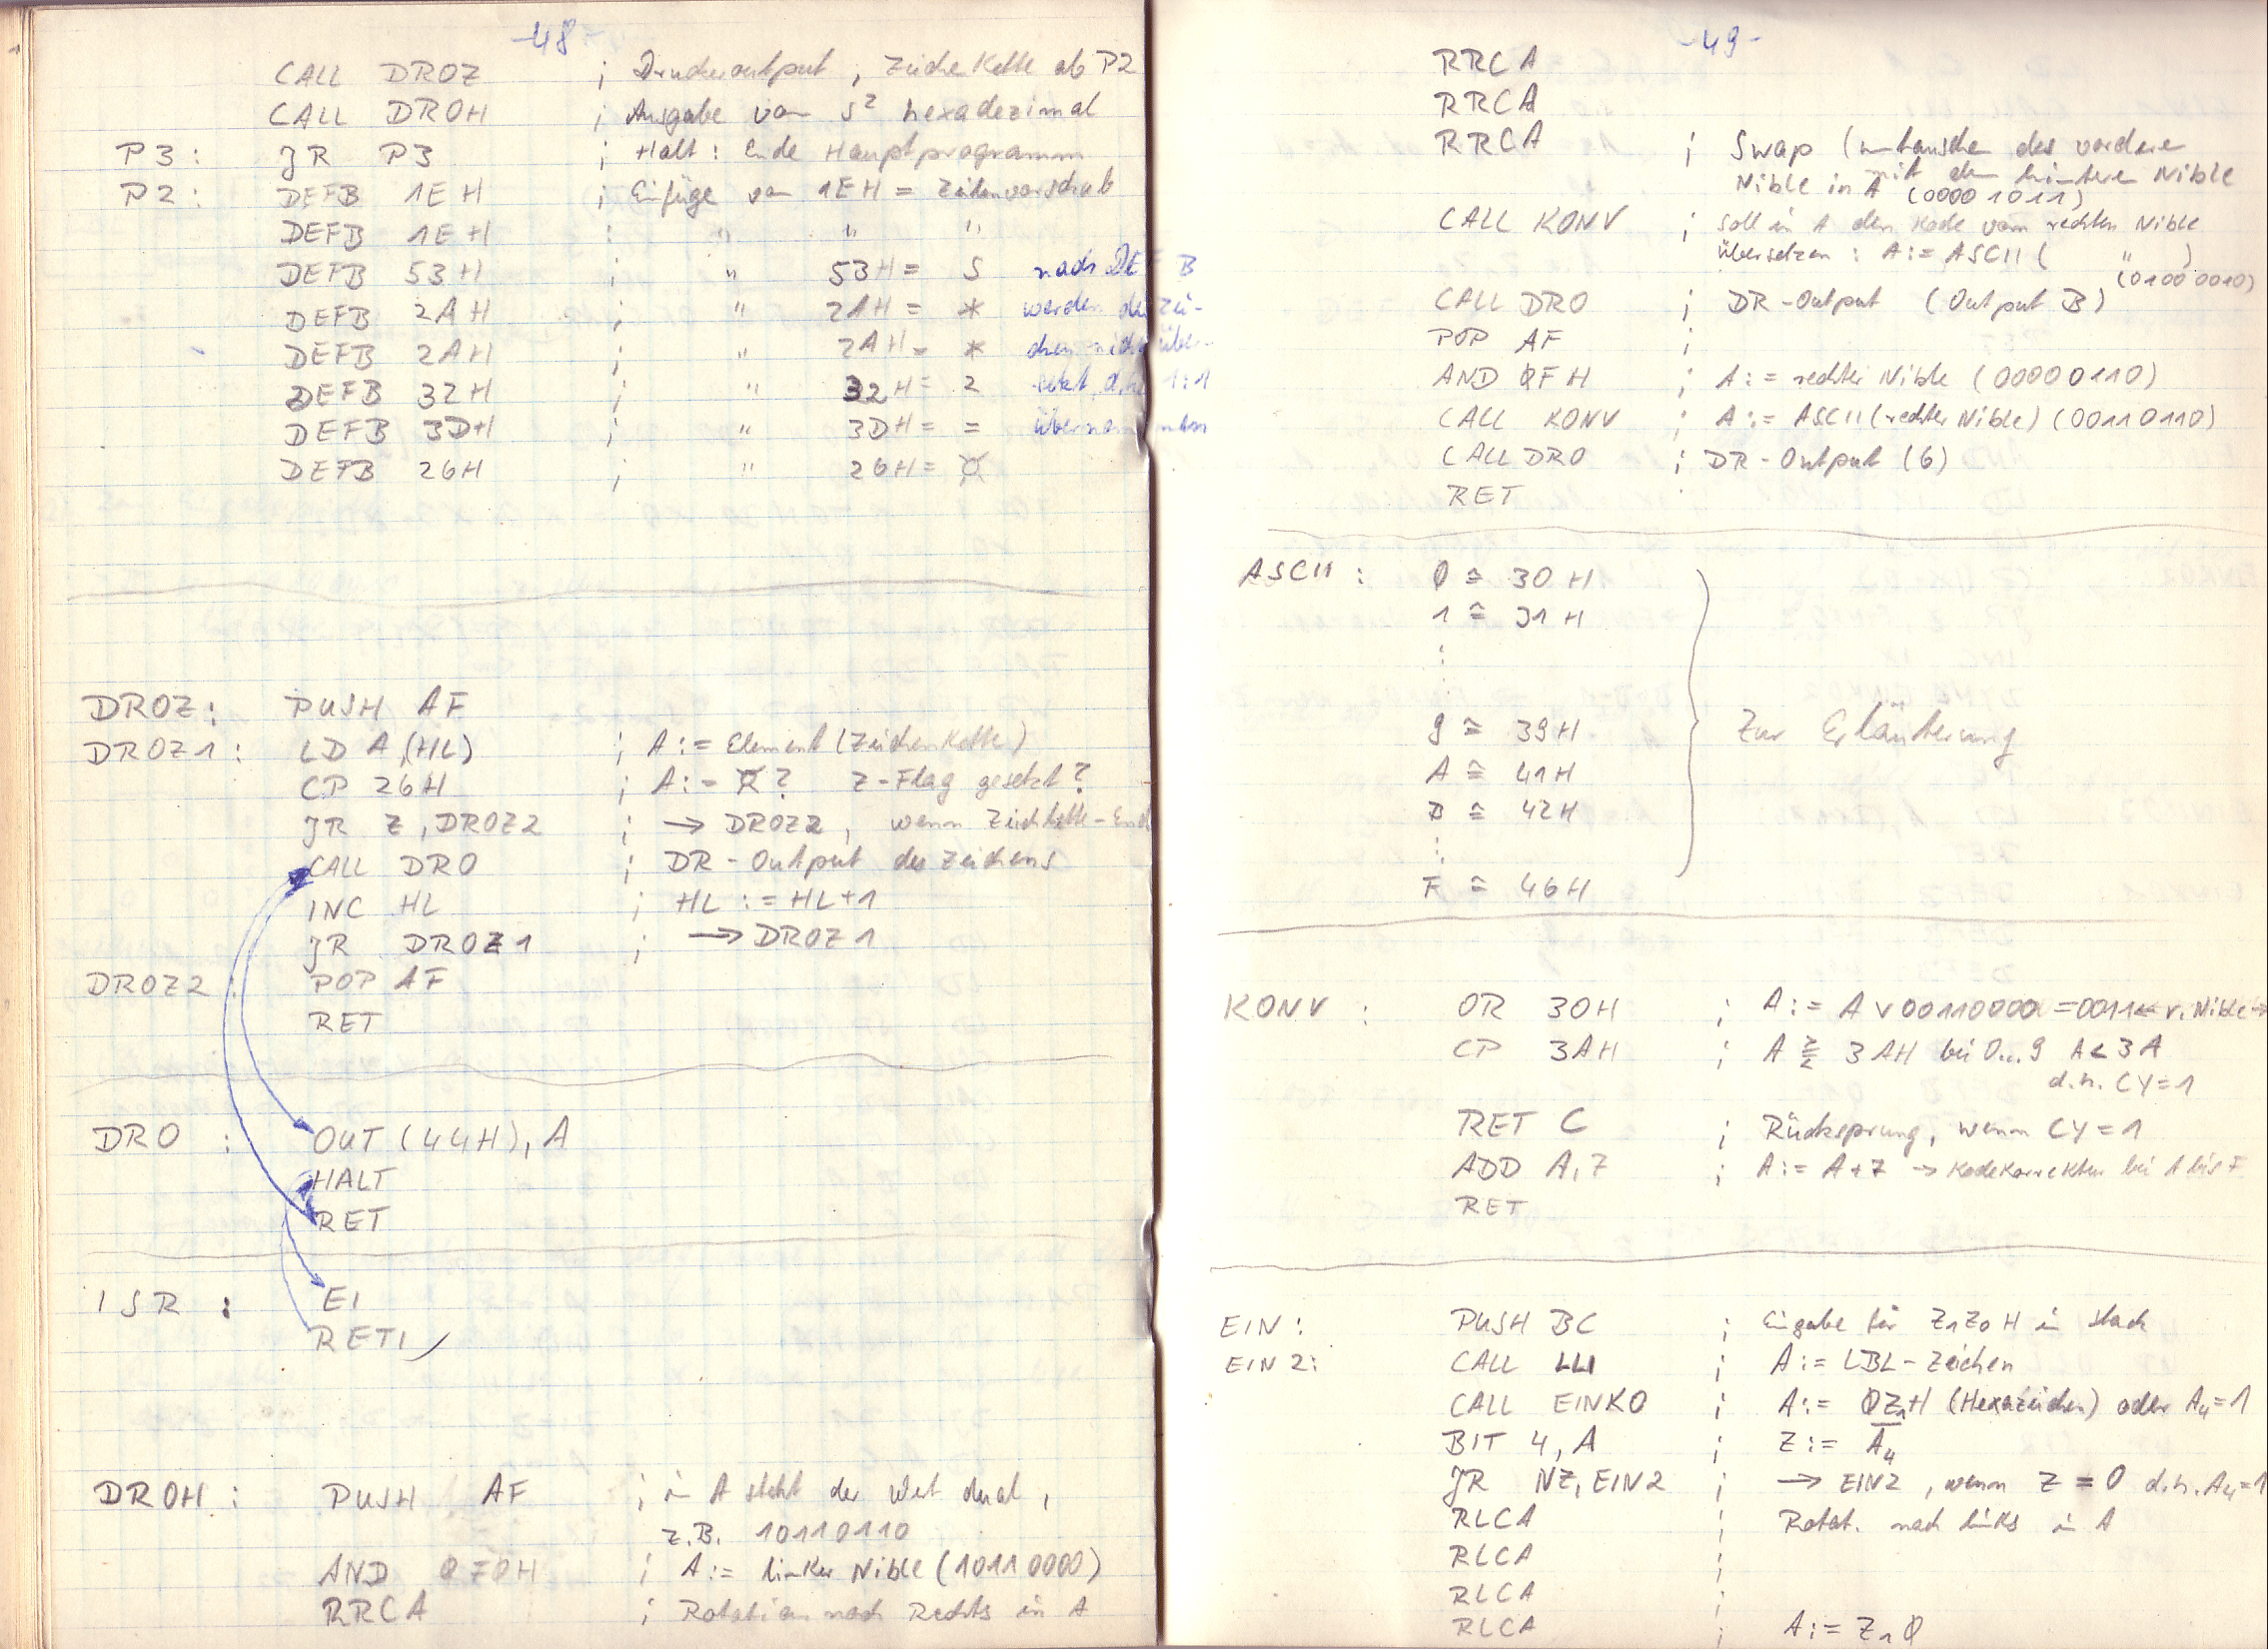 -48-
CALL DROZ ; Druckeroutput, Zeichekette ab P2
CALL DROH ; Ausgabe von S² hexadezimal
P3: JR P3 ; Halt: Ende Hauptprogramm
P2: DEFB 1EH ; Einfüge von 1EH = Zeilenvorschub
DEFB 1EH ; " " "
DEFB 53H ; " 53H = S nach DEFB
DEFB 2AH ; " 2AH = * werden die Zei-
DEFB 2AH ; " 2AH = * chen nicht über-
DEFB 32H ; " 32H = 2 setzt, d.h. 1:1
DEFB 3DH ; " 3DH = = übernommen
DEFB 26H ; " 26H = ¤
DROZ: PUSH AF
DROZ1: LD A,(HL) ; A:= Element (Zeichenkette)
CP 26H ; A:= ¤? Z-Flag gesetzt?
JR Z, DROZ2 ; → DROZ2, wenn Zeichkette-End
CALL DRO ; DR-Output des Zeichens
INC HL ; HL := HL+1
JR DROZ1 ; → DROZ1
DROZ2: POP AF
RET
DRO : OUT (44H), A
HALT
RET
ISR : EI
RETI
DROH: PUSH AF ; in A steht der Wert dual,
z.B. 10110110
AND 0F0H ; A:= linker Nible (10110000)
RRCA ; Rotation nach Rechts in A
-49-
RRCA
RRCA
RRCA ; Swap (umtauschen des vordere
Nible in A mit dem hintere Nible
(00001011)
CALL KONV ; soll in A den Kode vom rechten Nible
übersetzen : A:= ASCII ( " )
(01000010)
CALL DRO ; DR-Output (Output B)
POP AF ;
AND 0FH ; A:= rechter Nible (00000110)
CALL KONV ; A:= ASCII (rechter Nible) (00110110)
CALL DRO ; DR-Output (6)
RET
ASCII : 0 ≙ 30H
1 ≙ 31H
⋮
9 ≙ 39H
Zur Erläuterung
A ≙ 41H
B ≙ 42H
⋮
F ≙ 46H
KONV : OR 30H ; A:= A ∨ 00110000 = 0011← r. Nible→
CP 3AH ; A ≷ 3AH bei 0...9 A < 3A
d.h. CY=1
RET C ; Rücksprung, wenn CY=1
ADD A,7 ; A:= A+7 → Kodekorrektur bei A bis F
RET
EIN: PUSH BC ; Eingabe für Z₁Z₀H in stack
EIN2: CALL LLI ; A:= LBL-Zeichen
CALL EINKO ; A:= 0Z₁H (Hexazeichen) oder A₄=1
BIT 4, A ; Z:= A̅₄
JR NZ, EIN2 ; → EIN2, wenn Z = 0 d.h. A₄=1
RLCA ; Rotat. nach links in A
RLCA ;
RLCA ;
RLCA ; A:= Z₁0